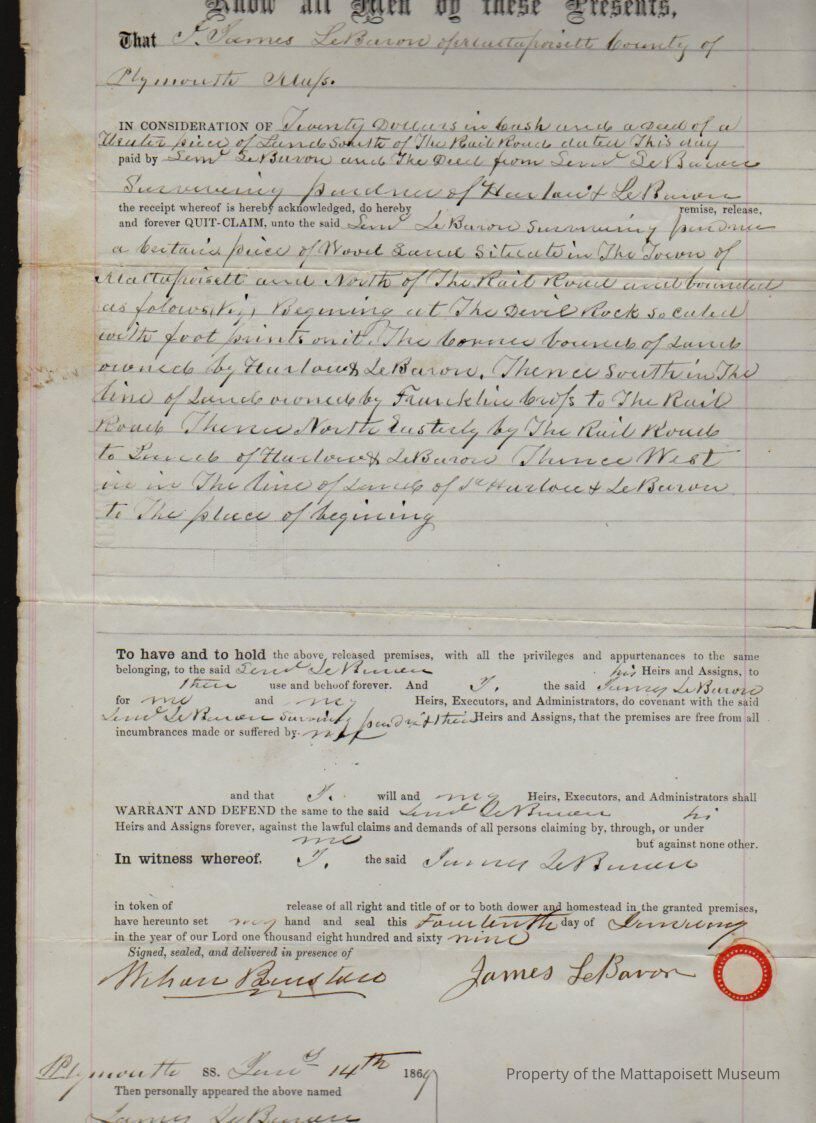 Know all Men by these Presents,
That I. James LeBaron of Mattapoisett County of
Plymouth Mass.
IN CONSIDERATION OF Twenty Dollars in Cash and a Deed of a
piece of Land South of The Rail Road dated This day
paid by Leml LeBaron and The Deed from Leml LeBaron
Surviving pardner of Harlow & LeBaron
the receipt whereof is hereby acknowledged, do hereby remise, release,
and forever QUIT-CLAIM, unto the said Leml LeBaron Surviving pardner
a Certain piece of Wood Land Situate in The Town of
Mattapoisett and North of The Rail Road and bounded
as folows, Viz, Begening at The Devil Rock so caled
with foot prints on it. The Corner bound of Land
owned by Harlow & LeBaron. Thence South in The
line of Land owned by Franklin Cross to The Rail
Road Thence North Easterly by The Rail Road
to Land of Harlow & LeBaron Thence West
in The line of Land of sd Harlow & LeBaron
to The place of begining
To have and to hold the above released premises, with all the privileges and appurtenances to the same
belonging, to the said Leml LeBaron his Heirs and Assigns, to
their use and behoof forever. And I. the said James LeBaron
for me and my Heirs, Executors, and Administrators, do covenant with the said
Leml LeBaron Surviving & their Heirs and Assigns, that the premises are free from all
incumbrances made or suffered by
and that I. will and my Heirs, Executors, and Administrators shall
WARRANT AND DEFEND the same to the said Leml LeBaron his
Heirs and Assigns forever, against the lawful claims and demands of all persons claiming by, through, or under
me but against none other.
In witness whereof, I. the said James LeBaron
in token of release of all right and title of or to both dower and homestead in the granted premises,
have hereunto set my hand and seal this Fourteenth day of January
in the year of our Lord one thousand eight hundred and sixty nine
Signed, sealed, and delivered in presence of
Wilson Barstow James LeBaron
Plymouth SS. Jany 14th 1869
Then personally appeared the above named
James LeBaron
Property of the Mattapoisett Museum